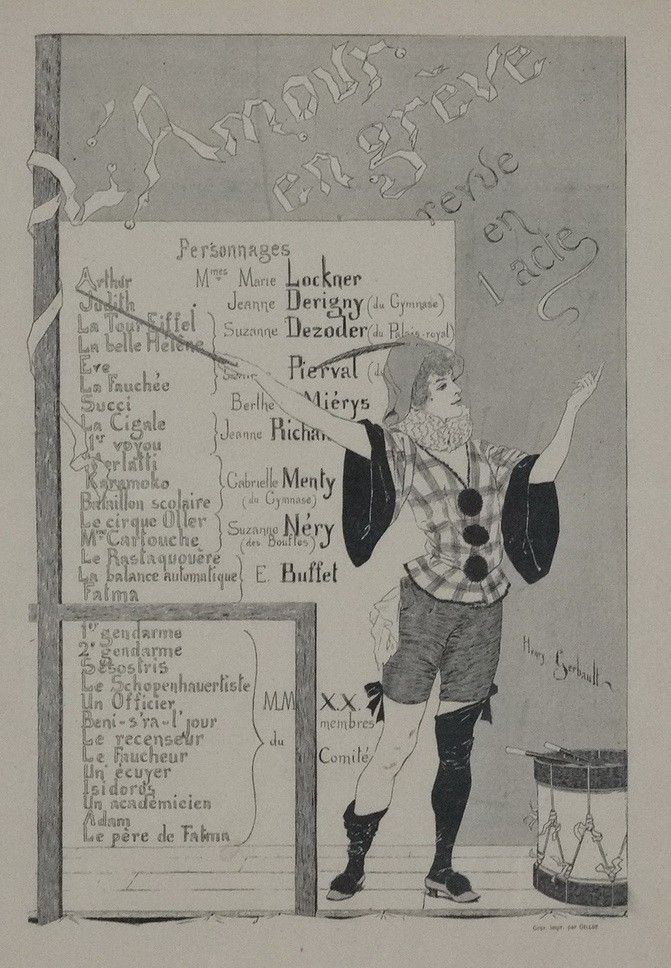 L'Amour
en grève
revue
en
1 acte
Personnages
Arthur Mmes Marie Lockner
Judith Jeanne Derigny (du Gymnase)
La Tour Eiffel
La belle Hélène Suzanne Dezoder (du Palais-royal)
Eve
La Fauchée Pierval
Succi Berthe Miérys
La Cigale
1er voyou Jeanne
Merlatti
Karamoko Gabrielle Menty
Bataillon scolaire (du Gymnase)
Le cirque Oller
Mme Cartouche Suzanne Néry
(des Bouffes)
Le Rastaquouère
La balance automatique E. Buffet
Fatma
1er gendarme
2e gendarme
Sésostris
Le Schopenhauertiste
Un Officier M.M. X.X.
Beni-s'ra-l'jour membres
Le recenseur du
Le Faucheur Comité
Un écuyer
Isidoros
Un académicien
Adam
Le père de Fatma
Henry Gerbault
Grav. Impr. par Gillot